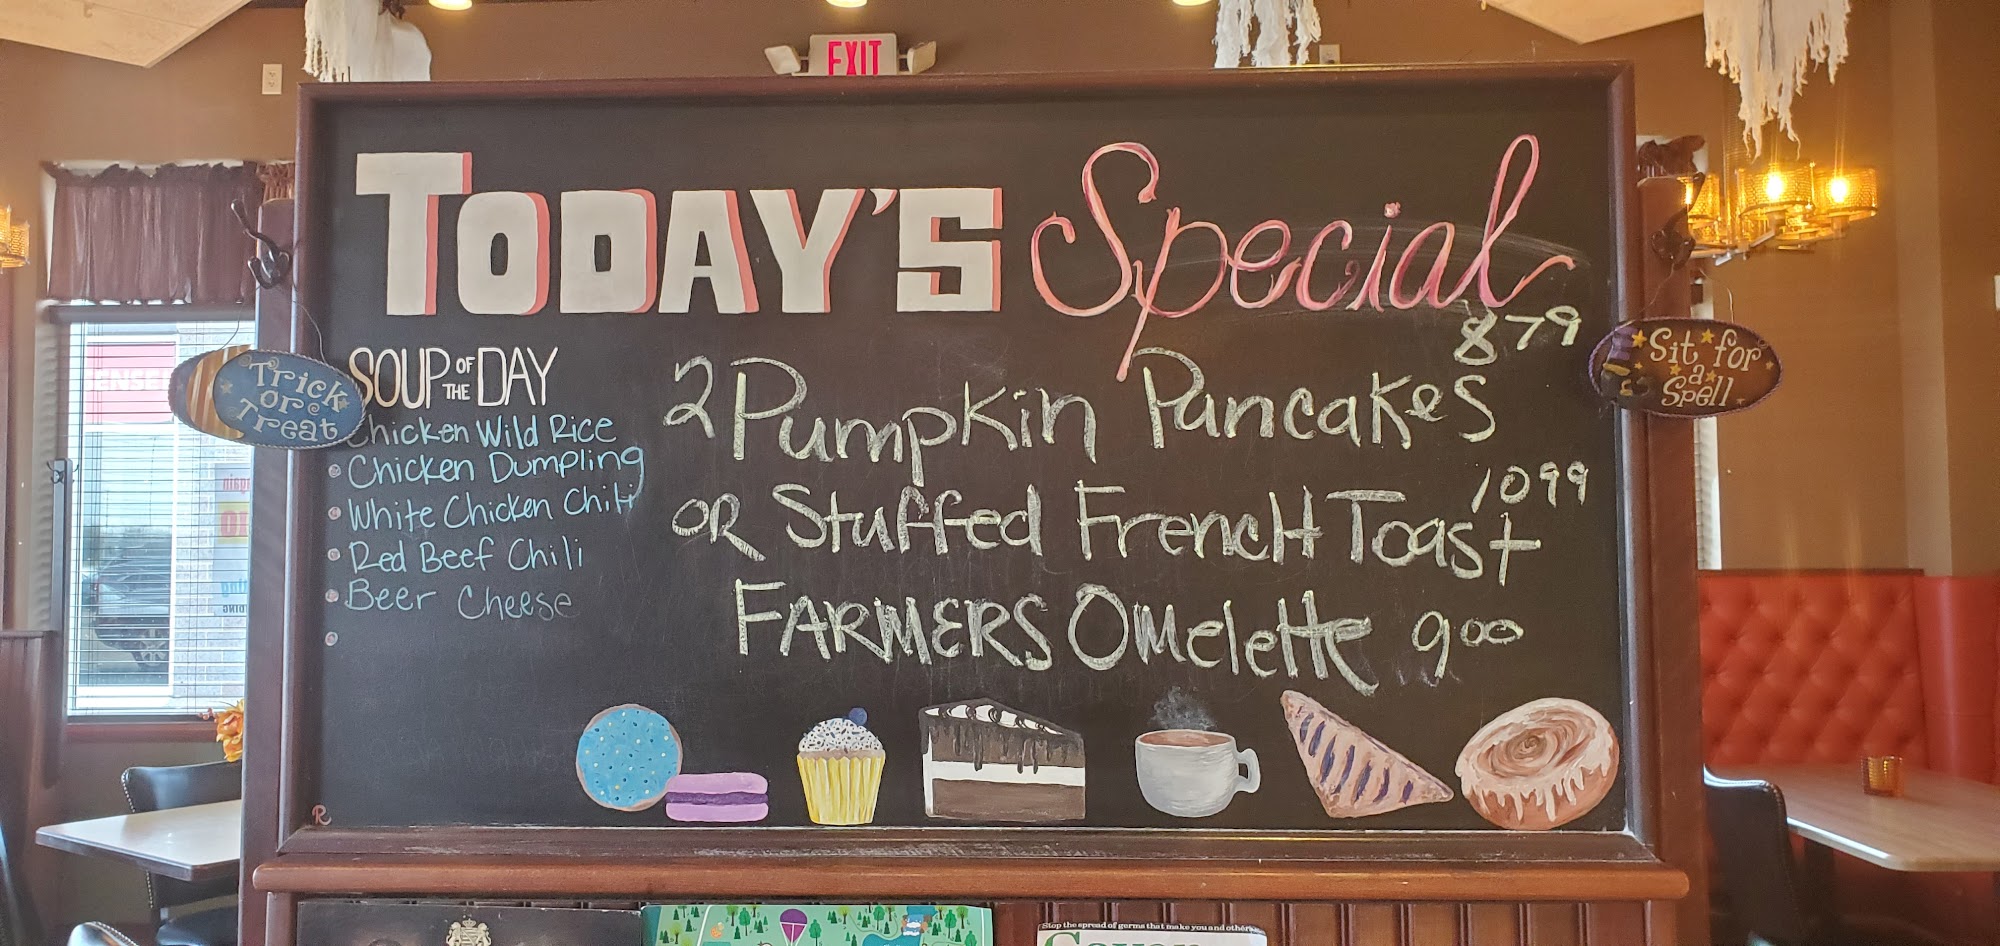 EXIT
TODAY'S Special
SOUP OF THE DAY
Chicken Wild Rice
Chicken Dumpling
White Chicken Chili
Red Beef Chili
Beer Cheese
879
2 Pumpkin Pancakes
1099
OR Stuffed French Toast
FARMERS Omelette 900
Trick
or
Treat
Sit for
a
Spell
R
Stop the spread of germs that make you and others